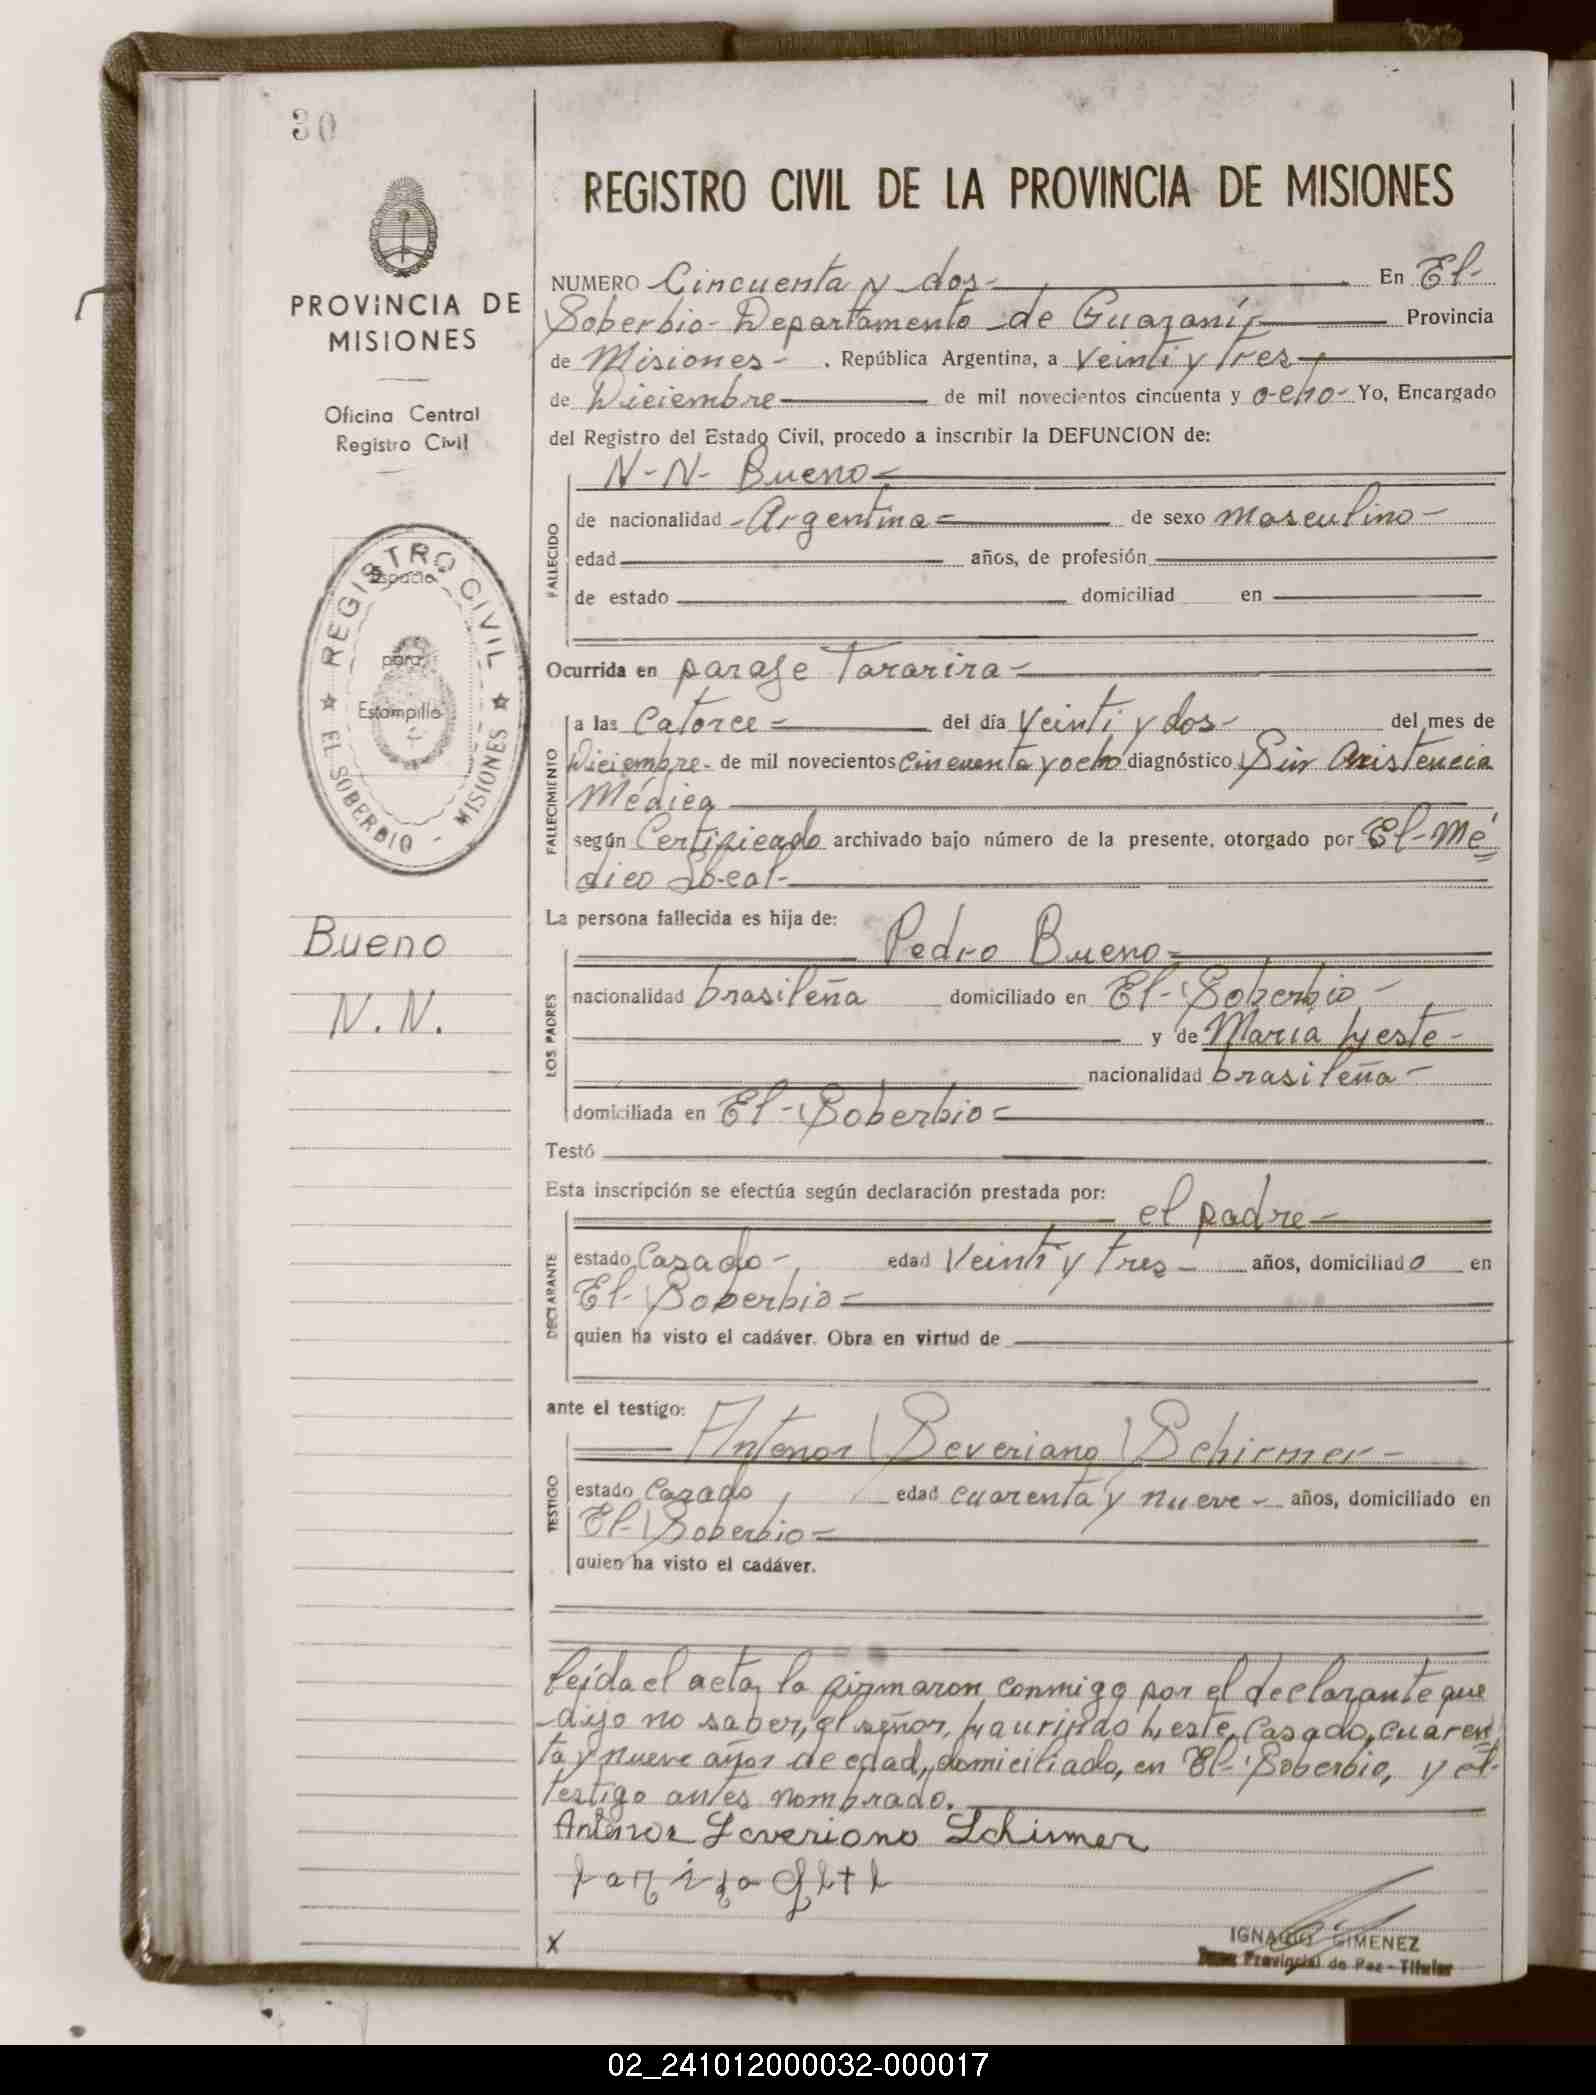 30
PROVINCIA DE
MISIONES
Oficina Central
Registro Civil
REGISTRO CIVIL
Espacio
para
Estampilla
EL SOBERBIO - MISIONES
Bueno
N. N.
REGISTRO CIVIL DE LA PROVINCIA DE MISIONES
NUMERO Cincuenta y dos- En El-
Soberbio- Departamento de Guaraní- Provincia
de Misiones- . República Argentina, a Veinti y Tres-
de Diciembre de mil novecientos cincuenta y ocho- Yo, Encargado
del Registro del Estado Civil, procedo a inscribir la DEFUNCION de:
N-N- Bueno-
FALLECIDO
de nacionalidad Argentina- de sexo masculino-
edad años, de profesión
de estado domiciliad en
Ocurrida en paraje Tararira-
FALLECIMIENTO
a las Catorce- del día Veinti y dos- del mes de
Diciembre- de mil novecientos cincuenta y ocho diagnóstico Sin Asistencia
Médica
según Certificado archivado bajo número de la presente, otorgado por El-Mé
dico Local-
La persona fallecida es hija de:
LOS PADRES
Pedro Bueno-
nacionalidad brasileña domiciliado en El-Soberbio-
y de Maria Leste-
nacionalidad brasileña-
domiciliada en El-Soberbio-
Testó
Esta inscripción se efectúa según declaración prestada por:
DECLARANTE
el padre-
estado Casado- edad Veinti y Tres- años, domiciliado en
El-Soberbio-
quien ha visto el cadáver. Obra en virtud de
ante el testigo:
TESTIGO
Antenor Severiano Schirmer-
estado Casado, edad cuarenta y nueve- años, domiciliado en
El-Soberbio-
quien ha visto el cadáver.
Leída el acta, la firmaron conmigo por el declarante que
dijo no saber, el señor, Laurindo Leste, Casado, cuaren
ta y nueve años de edad, domiciliado, en El-Soberbio, y el-
testigo antes nombrado.
Antenor Severiano Schirmer
X
IGNACIO GIMENEZ
Juez Provincial de Paz - Titular
02_241012000032-000017